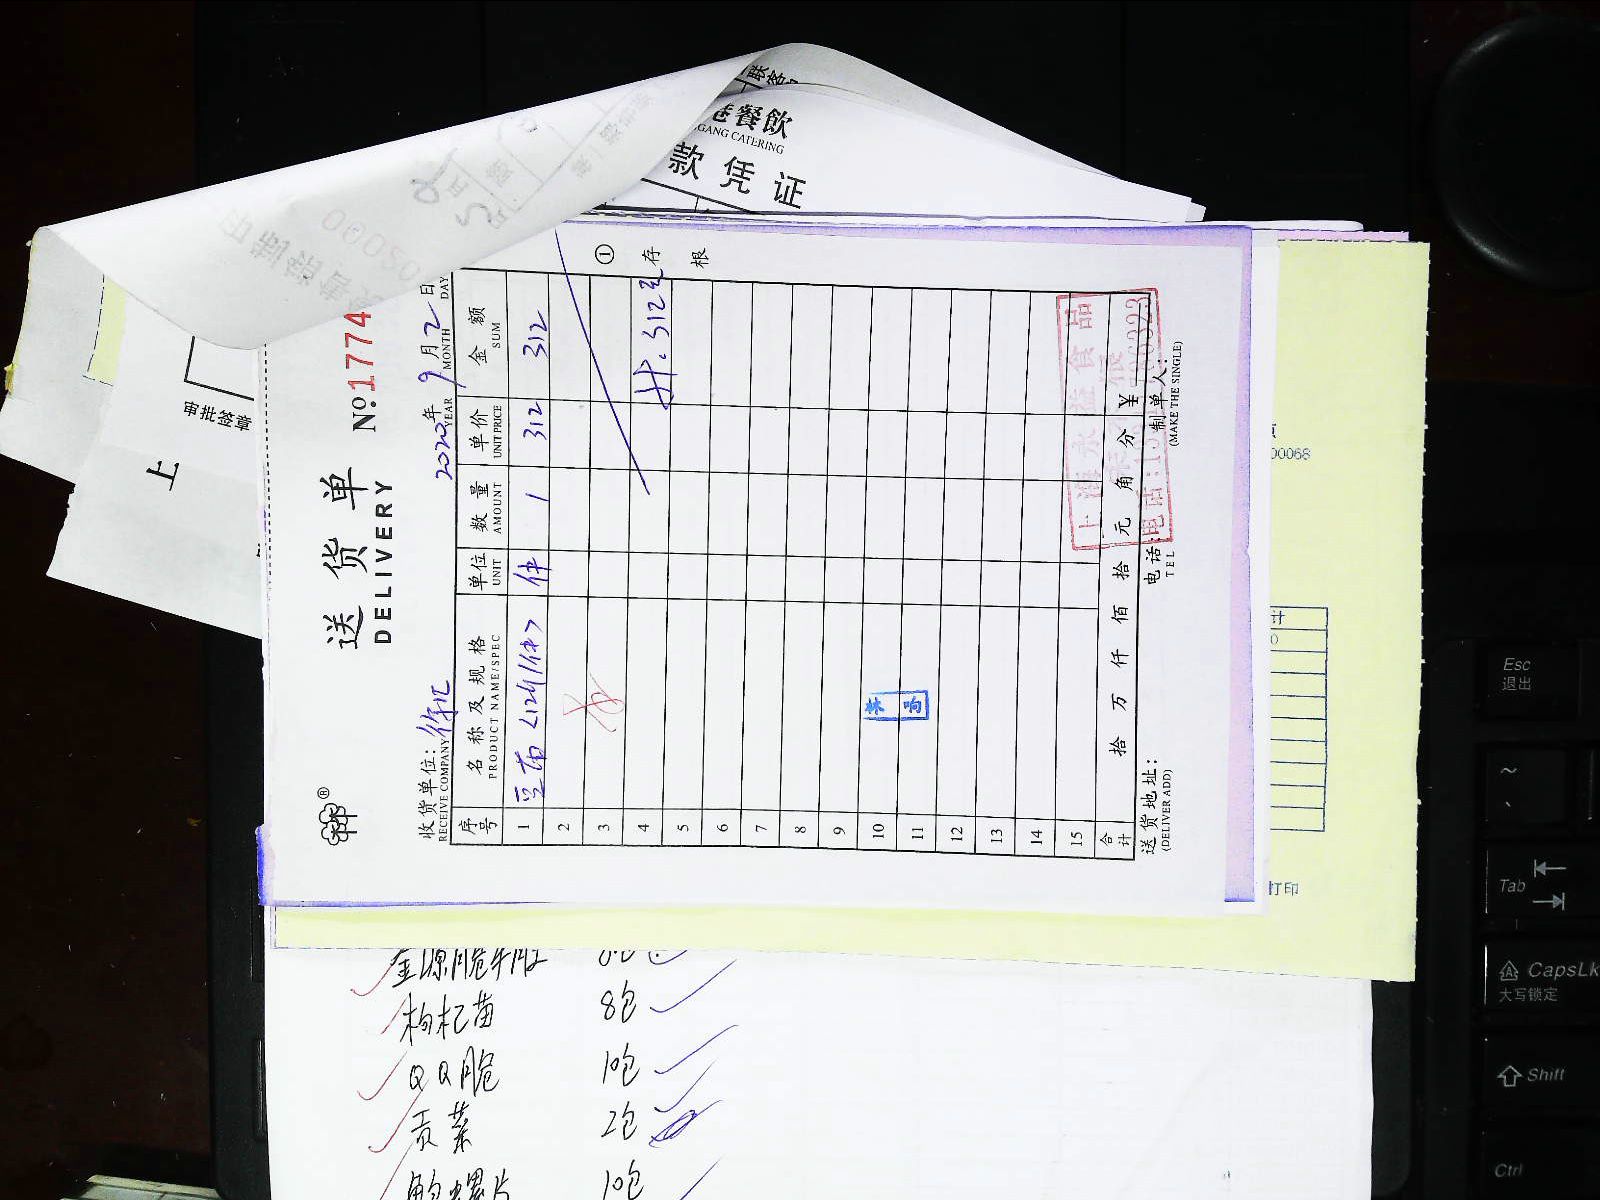 港餐飲
GANG CATERING
款凭证
审批签章
上
送货单
DELIVERY
№:1774
①存根
收货单位:徐汇
RECEIVE COMPANY
2020年9月2日
YEAR MONTH DAY
序号 名称及规格 单位 数量 单价 金额
PRODUCT NAME/SPEC UNIT AMOUNT UNIT PRICE SUM
1 豆苗 件 1 312 312
2
3
4 共:312元
5
6
7
8
9
10
11
12
13
14
15
合计 拾 万 仟 佰 拾 元 角 分 ¥
上海永益食品
送货地址:
(DELIVER ADD)
电话:
TEL
制单人:
(MAKE THE SINGLE)
00068
打印
枸杞苗 8包
QQ脆 10包
贡菜 2包
10包
Esc
退出
~
Tab
CapsLk
大写锁定
Shift
Ctrl